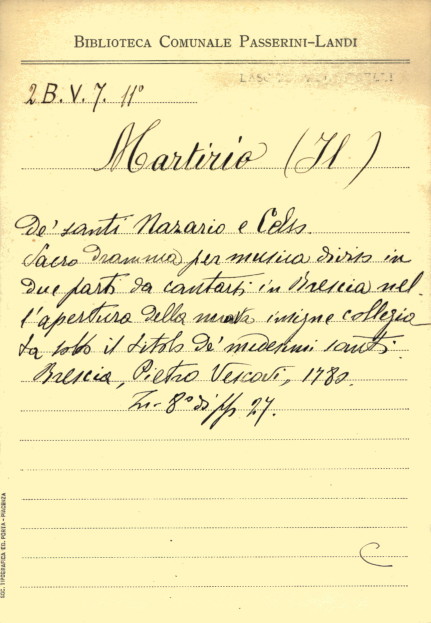 BIBLIOTECA COMUNALE PASSERINI-LANDI
2 B. V. 7. 11°
Martirio (Il)
De' santi Nazario e Celso.
Sacro dramma per musica diviso in
due parti da cantarsi in Brescia nel-
l'apertura della nuova insigne collegia
ta sotto il titolo de' medesimi santi.
Brescia, Pietro Vescovi, 1780.
In-8° di pp 27.
C
SOC. TIPOGRAFICA ED. PORTA - PIACENZA